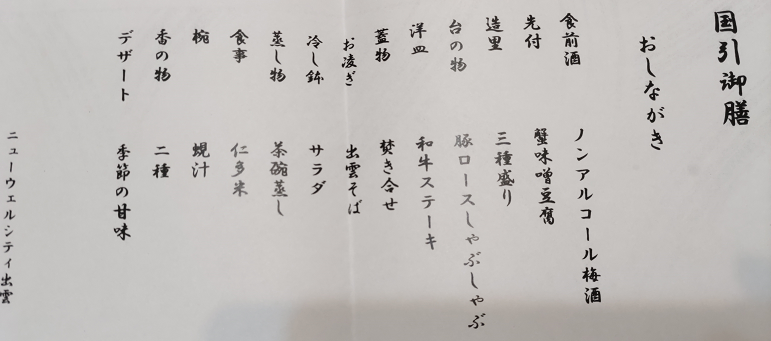 国引御膳
おしながき
食前酒 ノンアルコール梅酒
先付 蟹味噌豆腐
造里 三種盛り
台の物 豚ロースしゃぶしゃぶ
洋皿 和牛ステーキ
蓋物 焚き合せ
お凌ぎ 出雲そば
冷し鉢 サラダ
蒸し物 茶碗蒸し
食事 仁多米
椀 蜆汁
香の物 二種
デザート 季節の甘味
ニューウェルシティ出雲